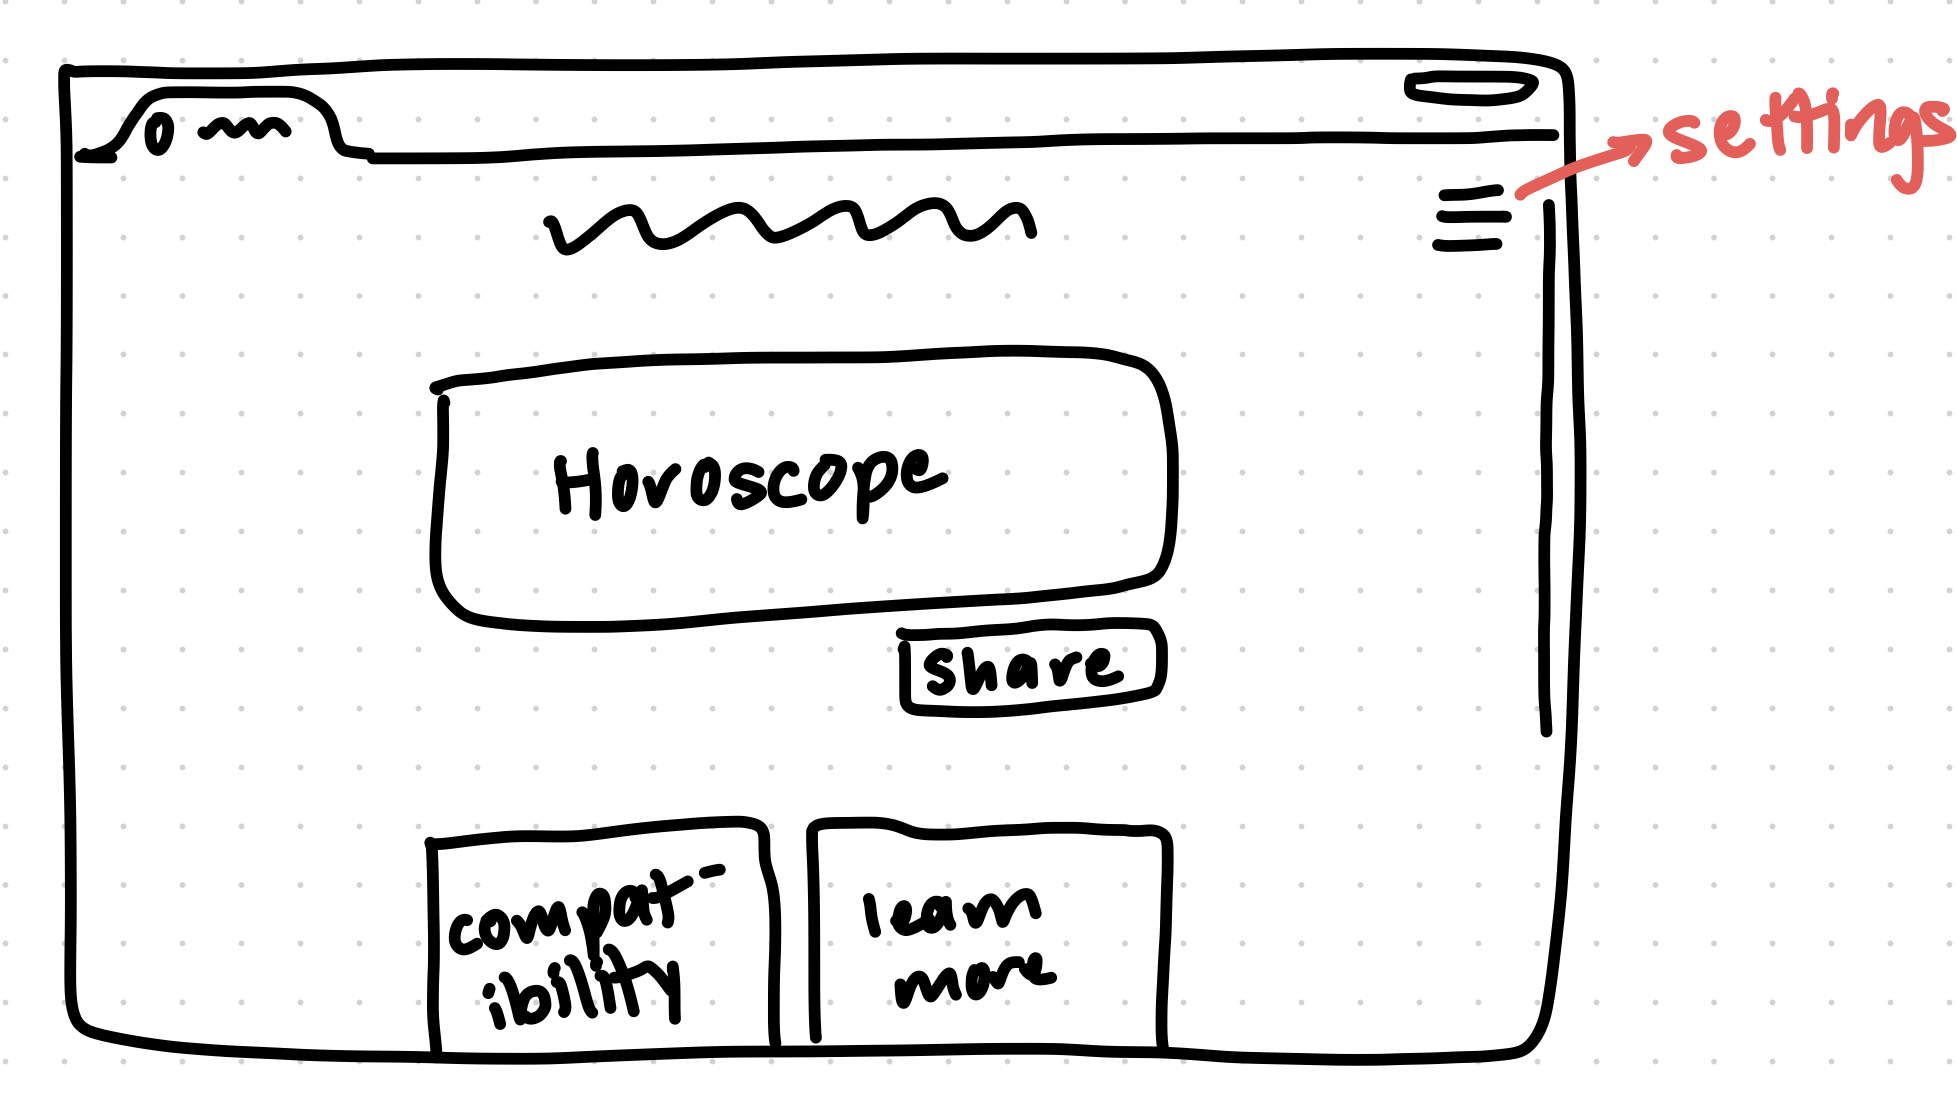 settings
Horoscope
share
compat-
ibility
learn
more